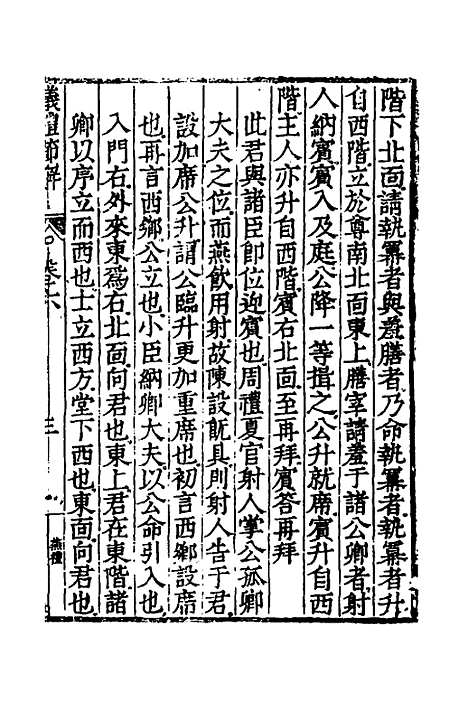 階下北面請執冪者與羞膳者乃命執冪者執冪者升
自西階立於尊南北面東上膳宰請羞于諸公卿者射
人納賓賓入及庭公降一等揖之公升就席賓升自西
階主人亦升自西階賓右北面至再拜賓答再拜
此君與諸臣即位迎賓也周禮夏官射人掌公孤卿
大夫之位而燕飲用射故陳設既具則射人告于君
設加席公升謂公臨升更加重席也初言西鄉設席
也再言西鄉公立也小臣納卿大夫以公命引入也
入門右外來東為右北面向君也東上君在東階諸
卿以序立而西也士立西方堂下西也東面向君也
儀禮節解
卷六
三
燕禮